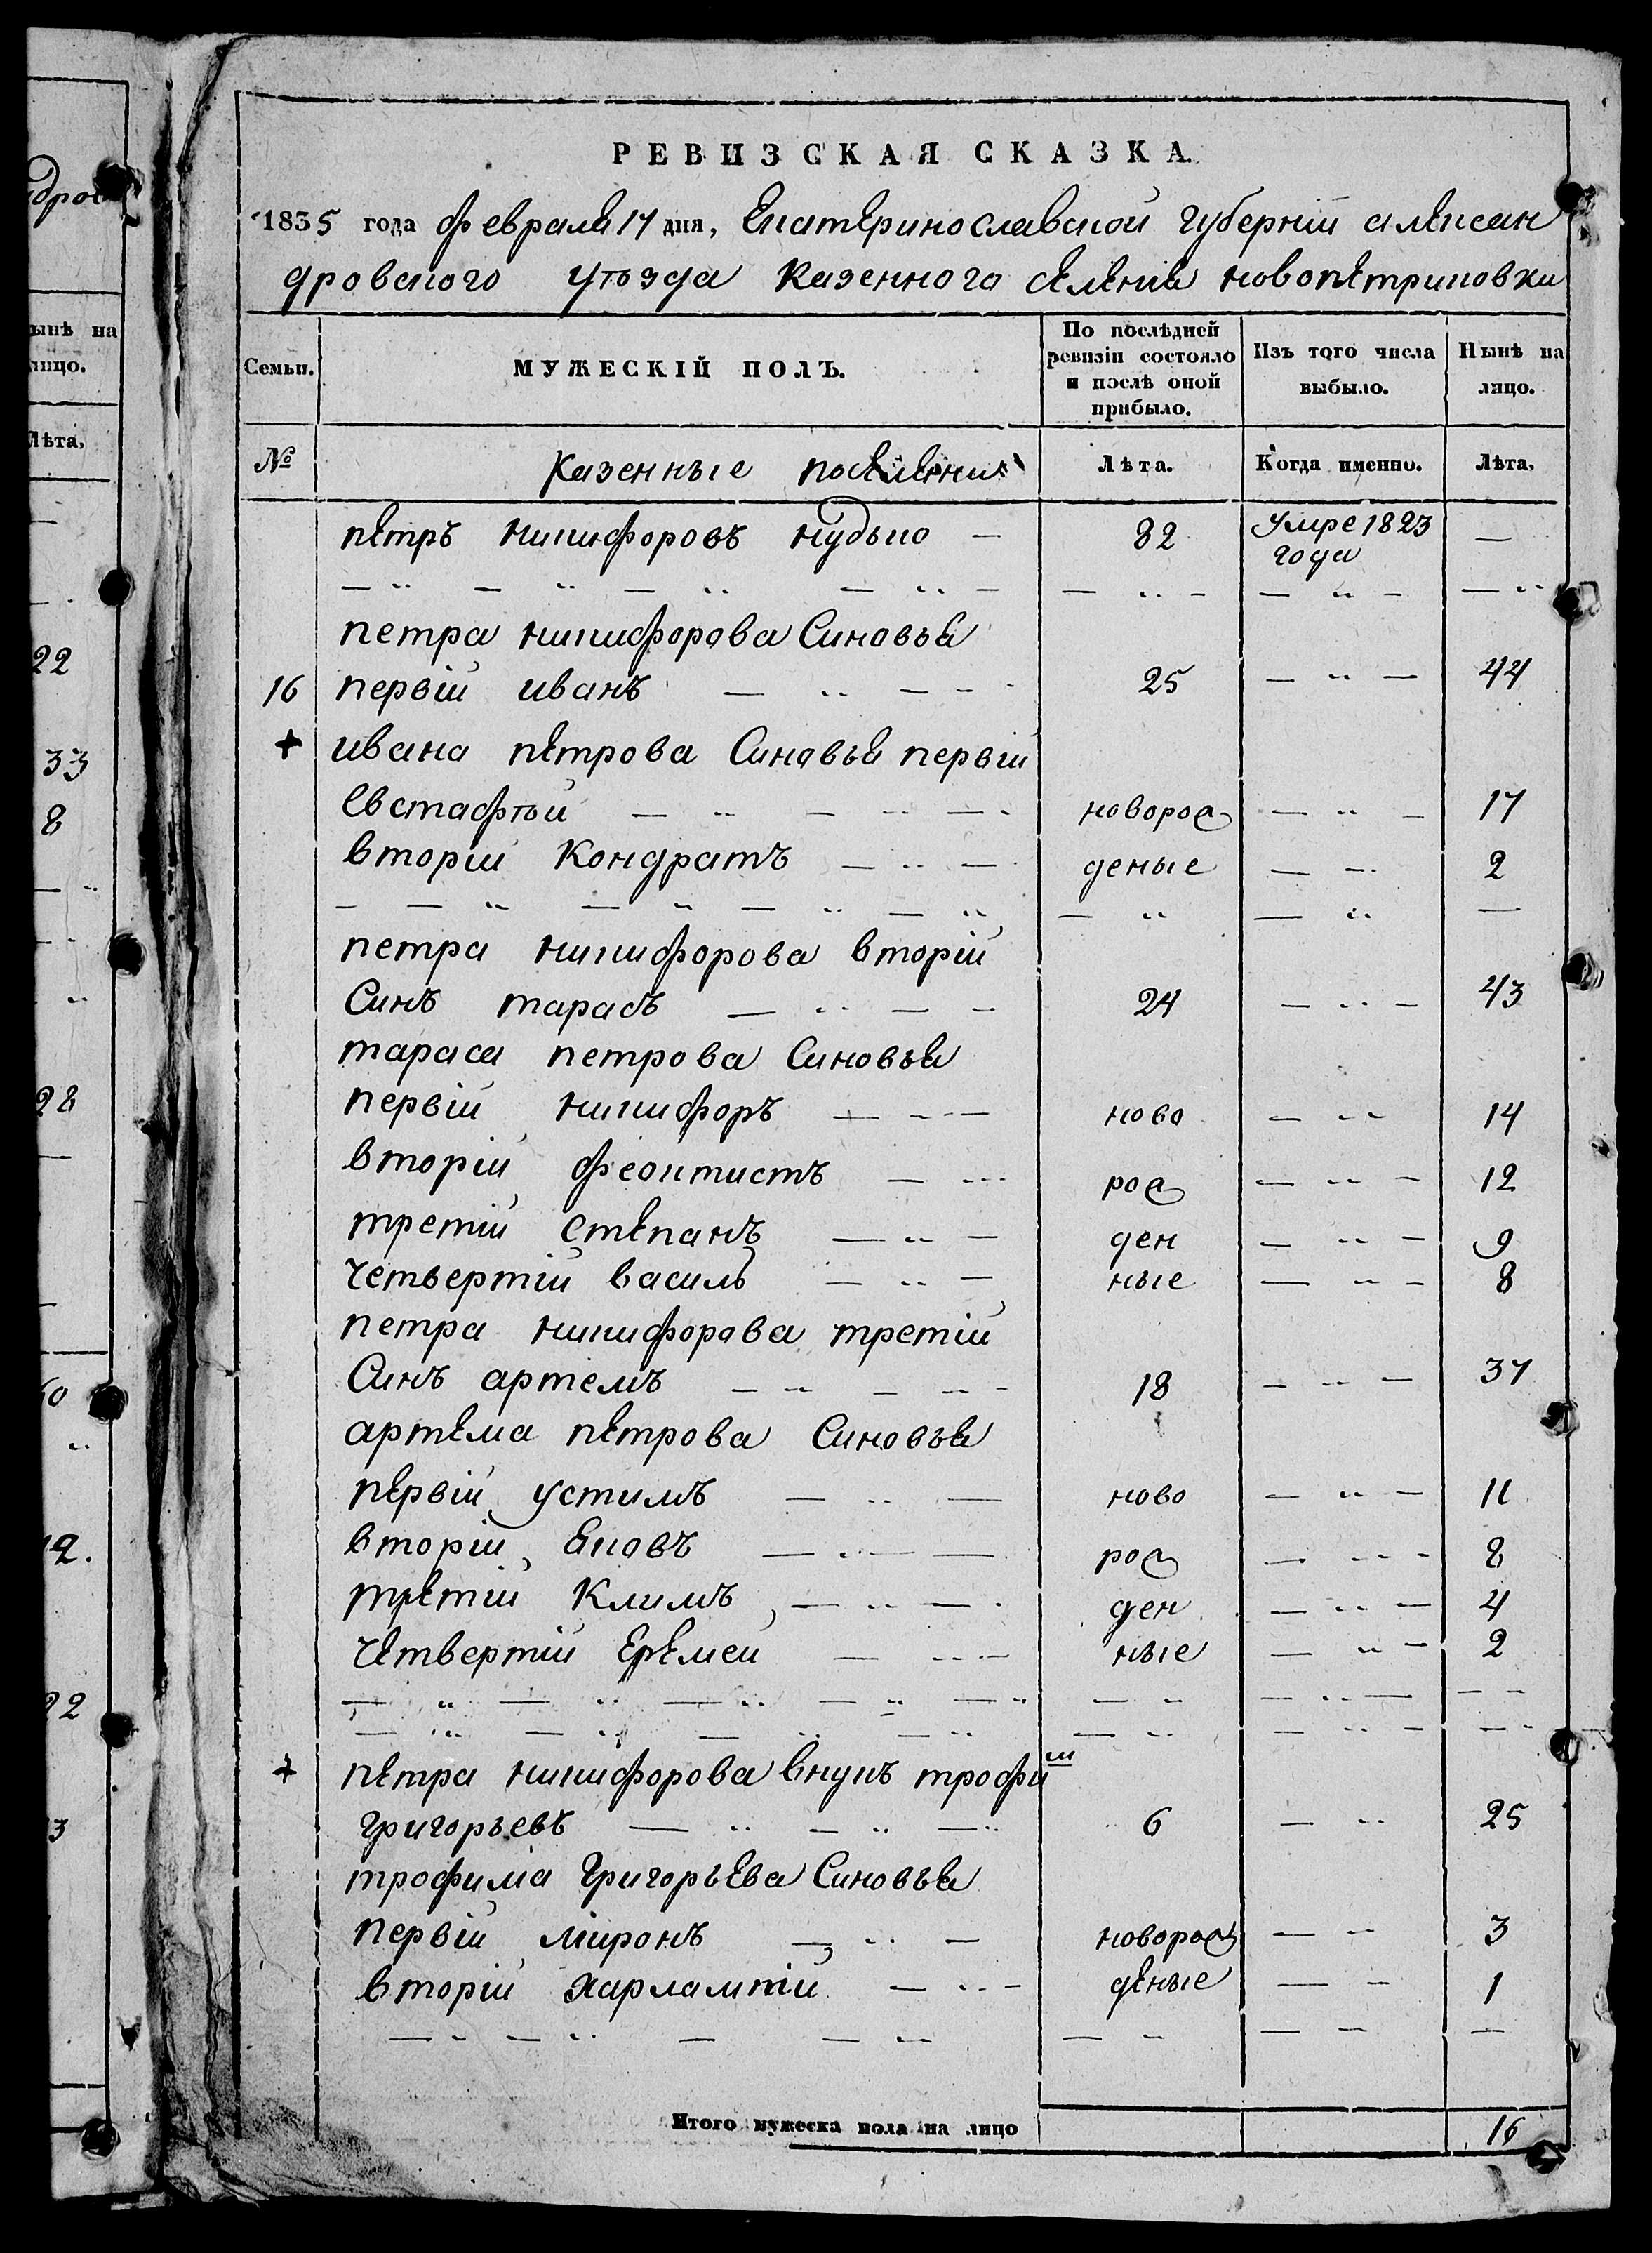 РЕВИЗСКАЯ СКАЗКА.
1835 года февраля 17 дня, Екатеринославской губернии алексан
дровского уѣзда казенного селения новопетриковки
Семьи. МУЖЕСКІЙ ПОЛЪ. По послѣдней ревизіи состояло и послѣ оной прибыло. Изъ того числа выбыло. Нынѣ на лицо.
№ Казенные поселяни Лѣта. Когда именно. Лѣта.
петръ никифоровъ кудько — 82 Умре 1823 года —
петра никифорова Синовья
16 первій иванъ 25 44
+ ивана петрова Синовья первій
Евстафѣй новорож 17
вторій Кондратъ деные 2
петра никифорова вторій
Синъ тарасъ 24 43
тараса петрова Синовья
первій никифоръ ново 14
вторій феоктистъ рож 12
третій Степанъ ден 9
Четвертій василь ные 8
петра никифорова третій
Синъ артемъ 18 37
артема петрова Синовья
первій устимъ ново 11
вторій Яковъ рож 8
третій Климъ ден 4
Четвертій Еремей ные 2
+ петра никифорова внукъ трофим
Григорьевъ 6 25
трофима Григорьева Синовья
первій міронъ новорож 3
вторій харлампій деные 1
Итого мужеска пола на лицо 16
ынѣ на
лицо.
Лѣта,
22
33
8
28
22